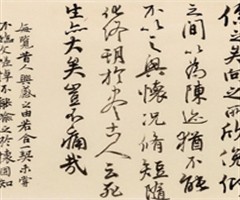 係之矣向之所欣俛仰
之間以為陳迹猶不能
不以之興懷況脩短隨
化終期於盡古人云死
生亦大矣豈不痛哉
每覽昔人興感之由若合一契未嘗
不臨文嗟悼不能喻之於懷固知